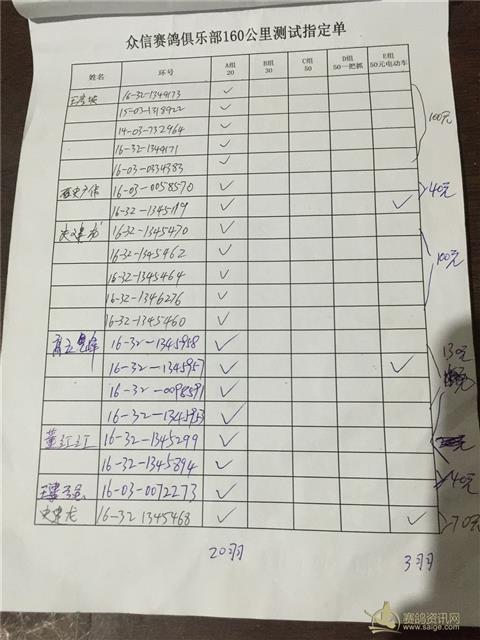 众信赛鸽俱乐部160公里测试指定单
姓名 环号 A组 20 B组 30 C组 50 D组 50一把抓 E组 50元电动车
16-32-1349173 ✓
15-03-1318922 ✓
14-03-732964 ✓
16-32-1349171 ✓ 100元
16-03-0334383 ✓
16-03-0058570 ✓ 40元
16-32-1345119 ✓ ✓
16-32-1345470 ✓
16-32-1345462 ✓
16-32-1345464 ✓ 100元
16-32-1346276 ✓
16-32-1345460 ✓
16-32-1345958 ✓ 130元
16-32-1345957 ✓ ✓
16-32-0098591 ✓
16-32-1345953 ✓
董江江 16-32-1345299 ✓
16-32-1345894 ✓ 40元
16-03-0072273 ✓
史建龙 16-32 1345468 ✓ ✓ 70元
20羽 3羽
赛鸽资讯网
www.saige.com